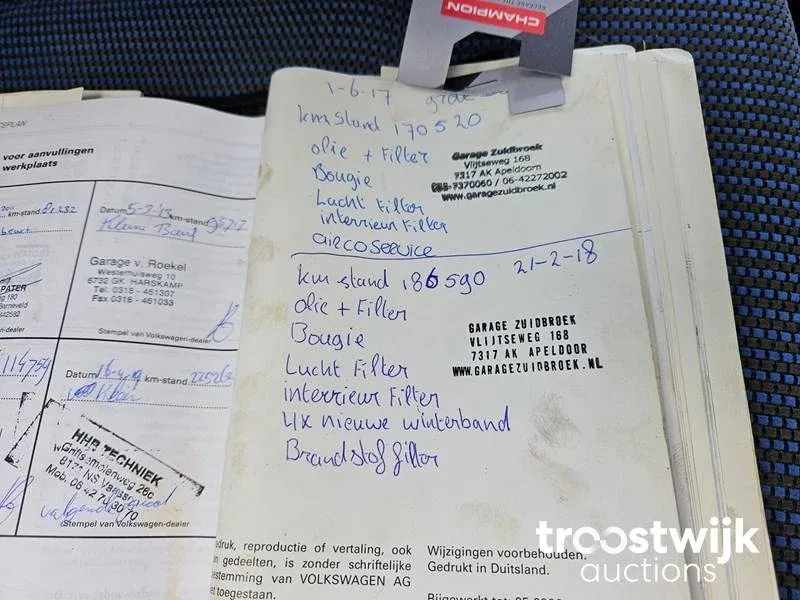 CHAMPION
voor aanvullingen
werkplaats
km-stand
Datum 5-7-13 km-stand
Kleine Beurt
Garage v. Roekel
Westerhuisweg 10
6732 GK HARSKAMP
Tel. 0318 - 461307
Fax 0318 - 461033
Stempel van Volkswagen-dealer
114759
Datum km-stand
HHP TECHNIEK
Mob. 06
Stempel van Volkswagen-dealer
1-6-17
km stand 170520
olie + Filter
Bougie
Lucht Filter
interrieur Filter
aircoservice
Garage Zuidbroek
Vlijtseweg 168
7317 AK Apeldoorn
055-7370060 / 06-42272002
www.garagezuidbroek.nl
km stand 186590 21-2-18
olie + Filter
Bougie
Lucht Filter
interrieur Filter
4x nieuwe winterband
Brandstof filter
GARAGE ZUIDBROEK
VLIJTSEWEG 168
7317 AK APELDOOR
WWW.GARAGEZUIDBROEK.NL
druk, reproductie of vertaling, ook
gedeelten, is zonder schriftelijke
estemming van VOLKSWAGEN AG
toegestaan.
Wijzigingen voorbehouden.
Gedrukt in Duitsland.
troostwijk
auctions